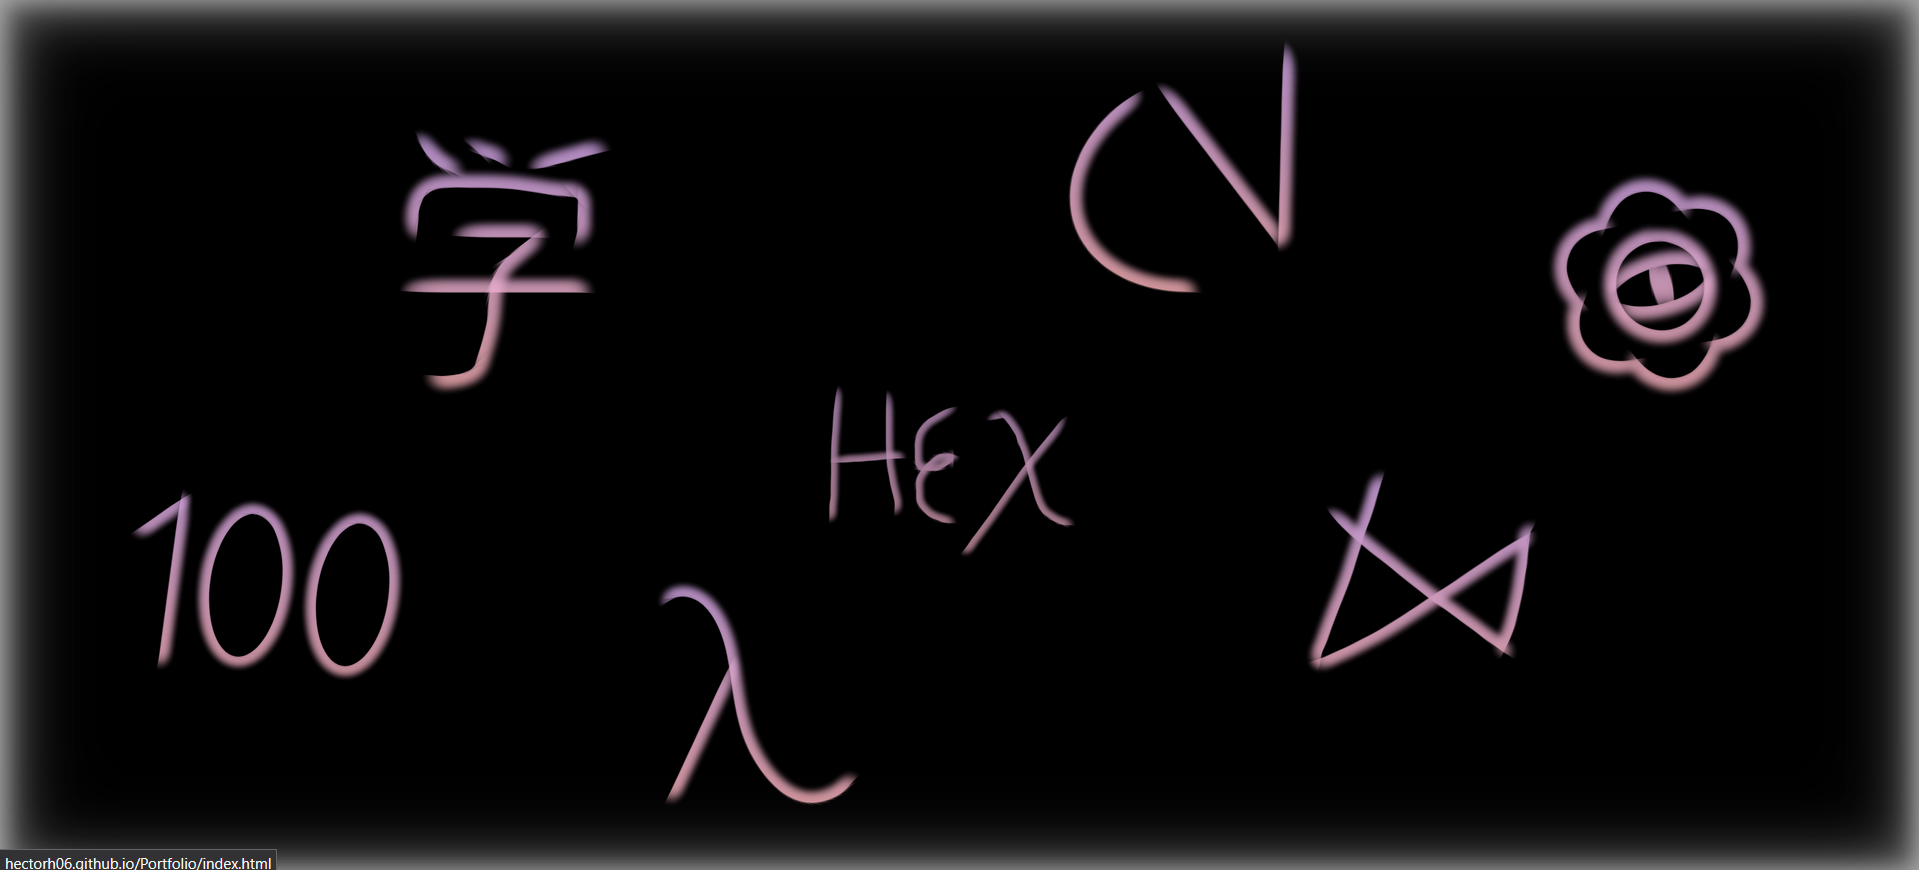 学
CV
HEX
100
λ
hectorh06.github.io/Portfolio/index.html